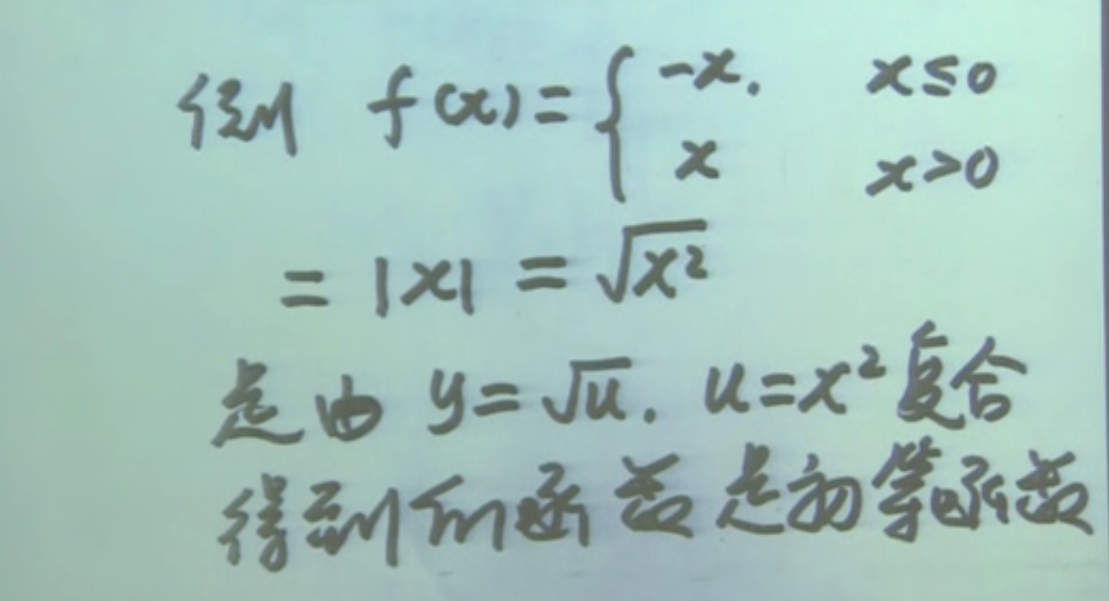 例 f(x)={ -x. x≤0
x x>0
=|x|=√x²
是由 y=√u. u=x²复合
得到的函数是初等函数